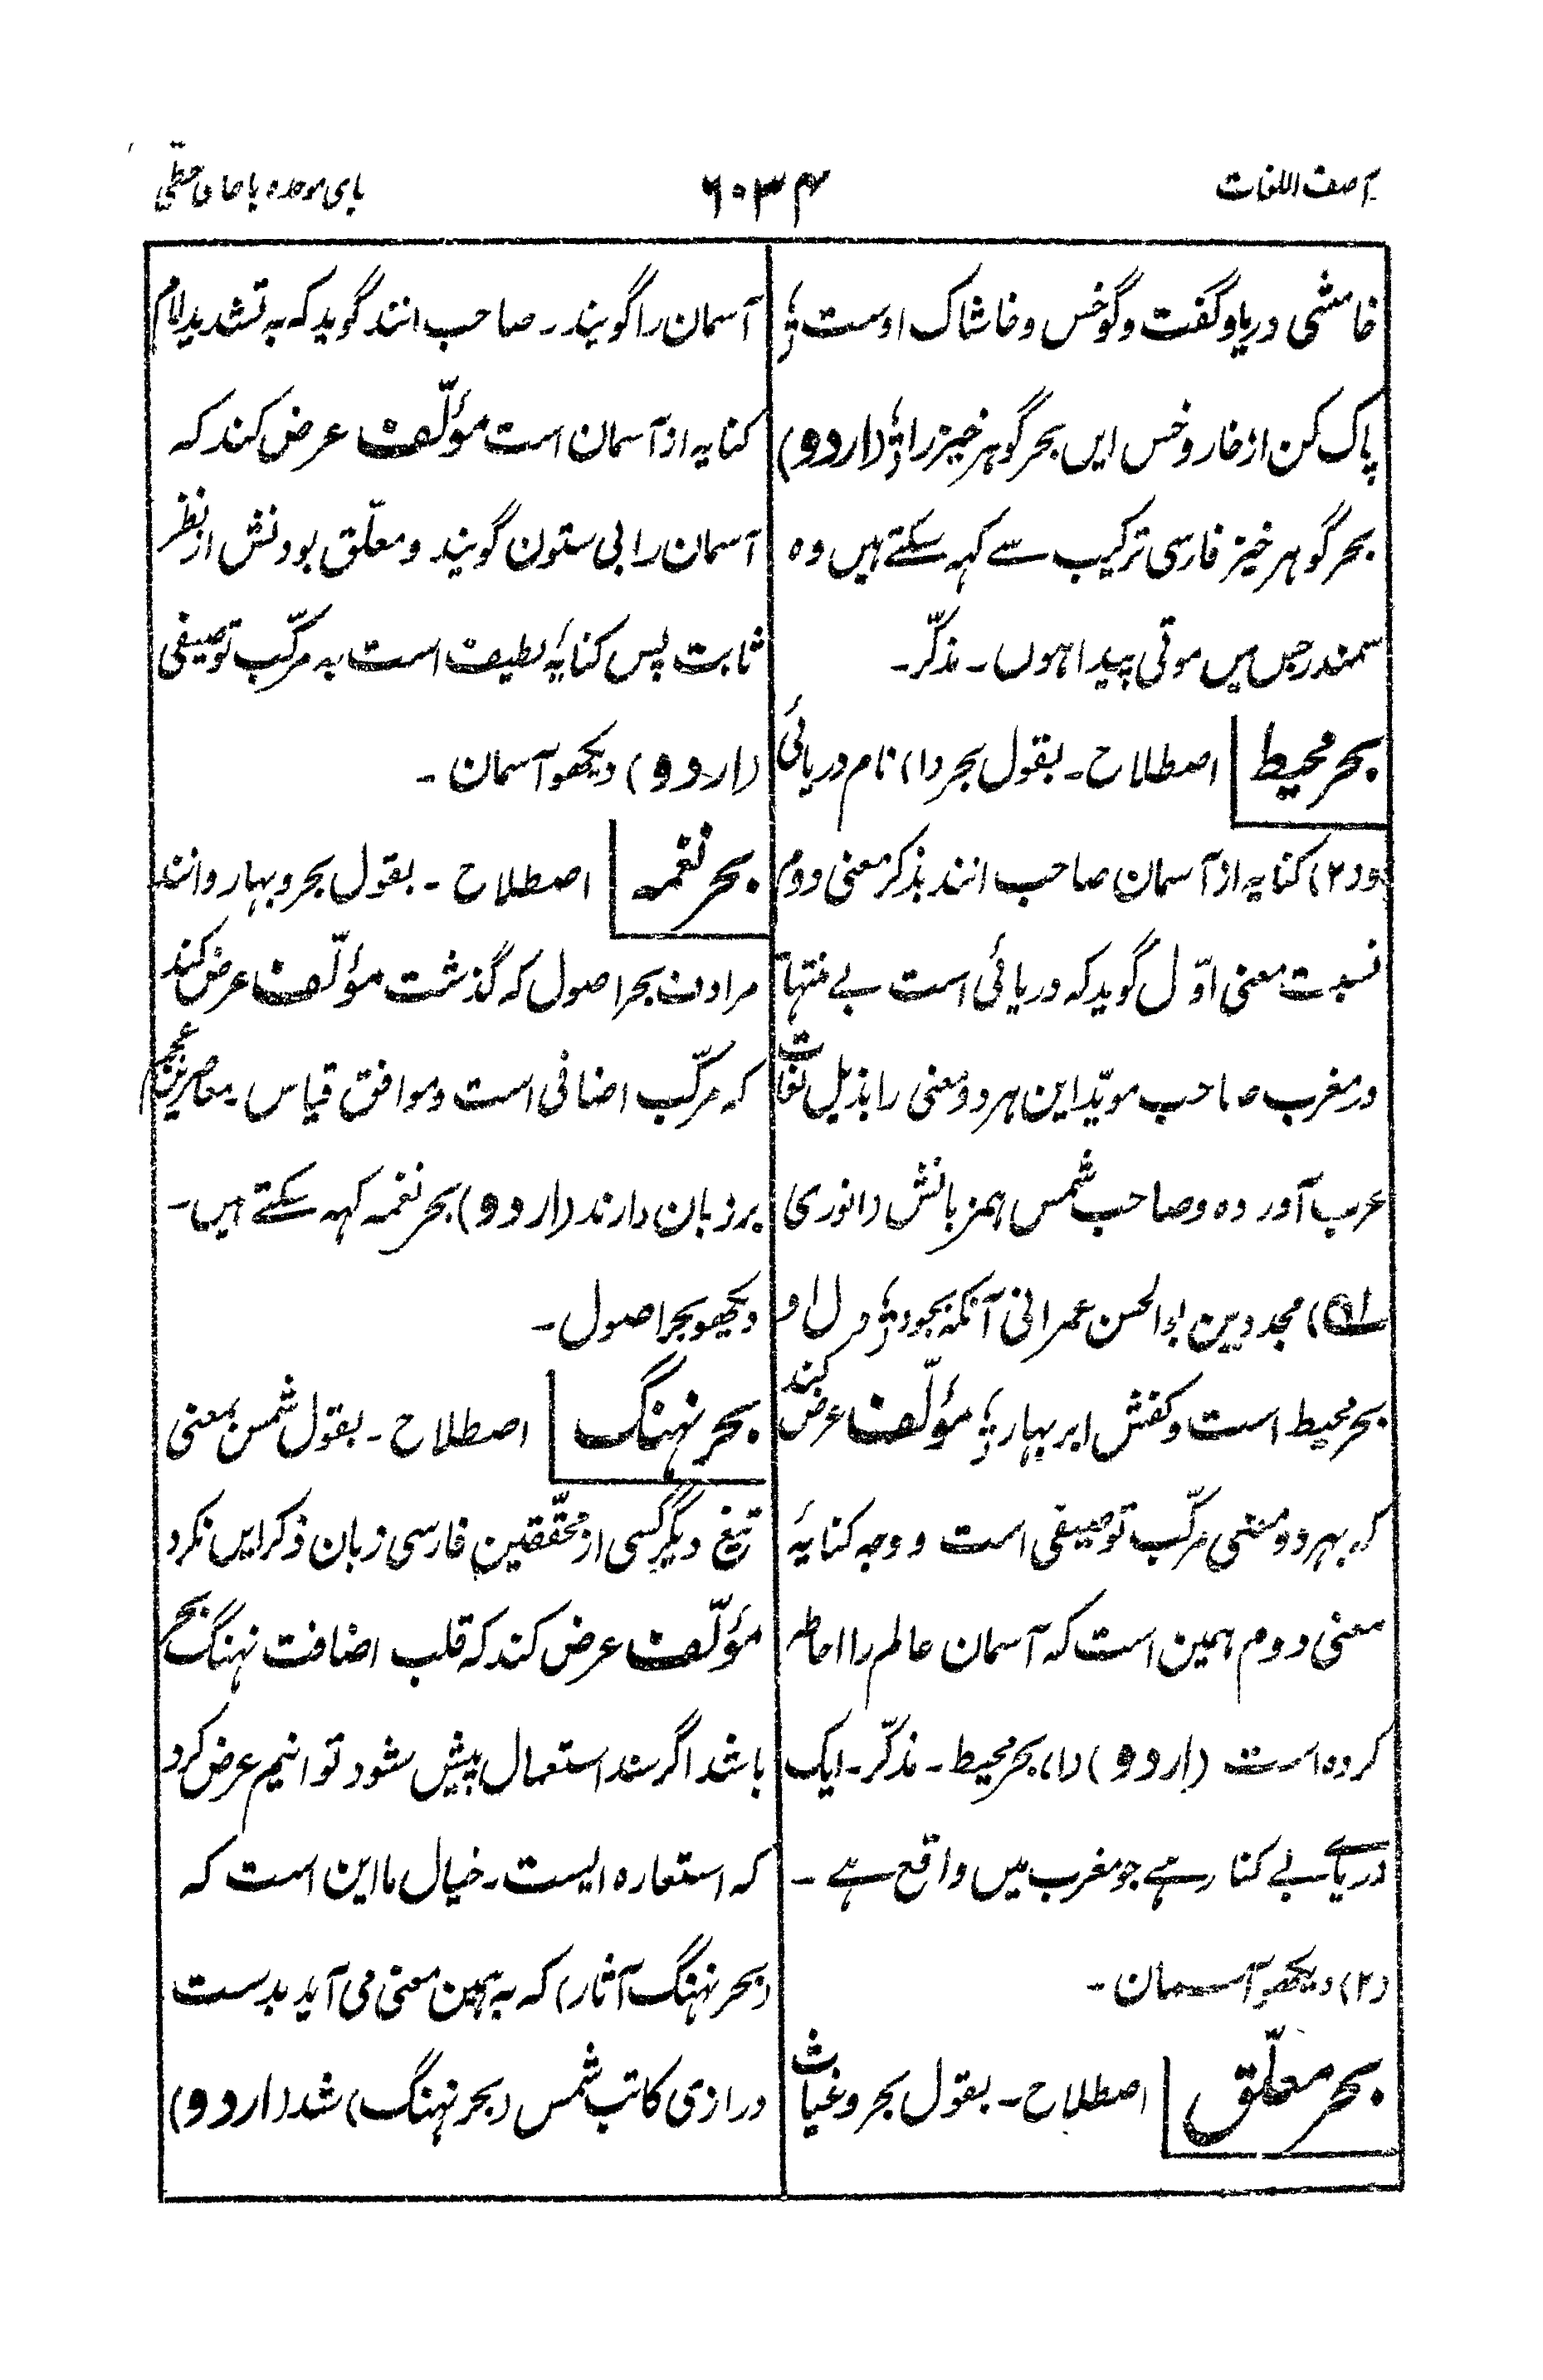 آصف اللغات
۶۰۳۴
بای موحده باحای حطّی
خامشی دریا و گفت و گو خس و خاشاک اوست ؛
پاک کن از خار و خس ایں بحر گوہر خیز را ؛ (اردو)
بحر گوہر خیز فارسی ترکیب سے کہہ سکتے ہیں وہ
سمندر جس میں موتی پیدا ہوں ۔ مذکّر ۔
بحر محیط | اصطلاح ۔ بقول بحر (۱) نام دریائی
و (۲) کنایہ از آسمان صاحب انند بذکر معنی دوم
نسبت معنی اوّل گوید کہ دریائی است بے منتہا
در مغرب صاحب مویّد این ہر دو معنی را بذیل لغات
عرب آورده و صاحب شمس ہمزبانش (انوری
۵۱) مجد دین بوالحسن عمرانی آنکہ بجود ؛ دل او
بحر محیط است و کفش ابر بہار ؛ مؤلّف عرض کند
کہ بہر دو معنی مرکّب توصیفی است و وجہ کنایۂ
معنی دوم ہمین است کہ آسمان عالم را احاطہ
کردہ است (اردو) (۱) بحر محیط ۔ مذکّر ۔ ایک
دریاے بے کنار ہے جو مغرب میں واقع ہے ۔
(۲) دیکھو آسمان ۔
بحر معلّق | اصطلاح ۔ بقول بحر و غیاث
آسمان را گویند ۔ صاحب انند گوید کہ بہ تشدید لام
کنایہ از آسمان است مؤلّف عرض کند کہ
آسمان را بی ستون گویند و معلّق بودنش از نظر
ثابت پس کنایۂ لطیف است بہ مرکّب توصیفی
(اردو) دیکھو آسمان ۔
بحر نغمہ | اصطلاح ۔ بقول بحر و بہار و انند
مرادف بحر اصول کہ گذشت مؤلّف عرض کند
کہ مرکّب اضافی است و موافق قیاس ۔ معاصرین عجم
بر زبان دارند (اردو) بحر نغمہ کہہ سکتے ہیں ۔
دیکھو بحر اصول ۔
بحر نہنگ | اصطلاح ۔ بقول شمس بمعنی
تیغ دیگر کسی از محقّقین فارسی زبان ذکر ایں نکرد
مؤلّف عرض کند کہ قلب اضافت نہنگ بحر
باشد اگر سند استعمال پیش شود توانیم عرض کرد
کہ استعارہ ایست ۔ خیال ما این است کہ
(بحر نہنگ آثار) کہ بہ ہمین معنی می آید بدست
درازی کاتب شمس (بحر نہنگ) شد (اردو)